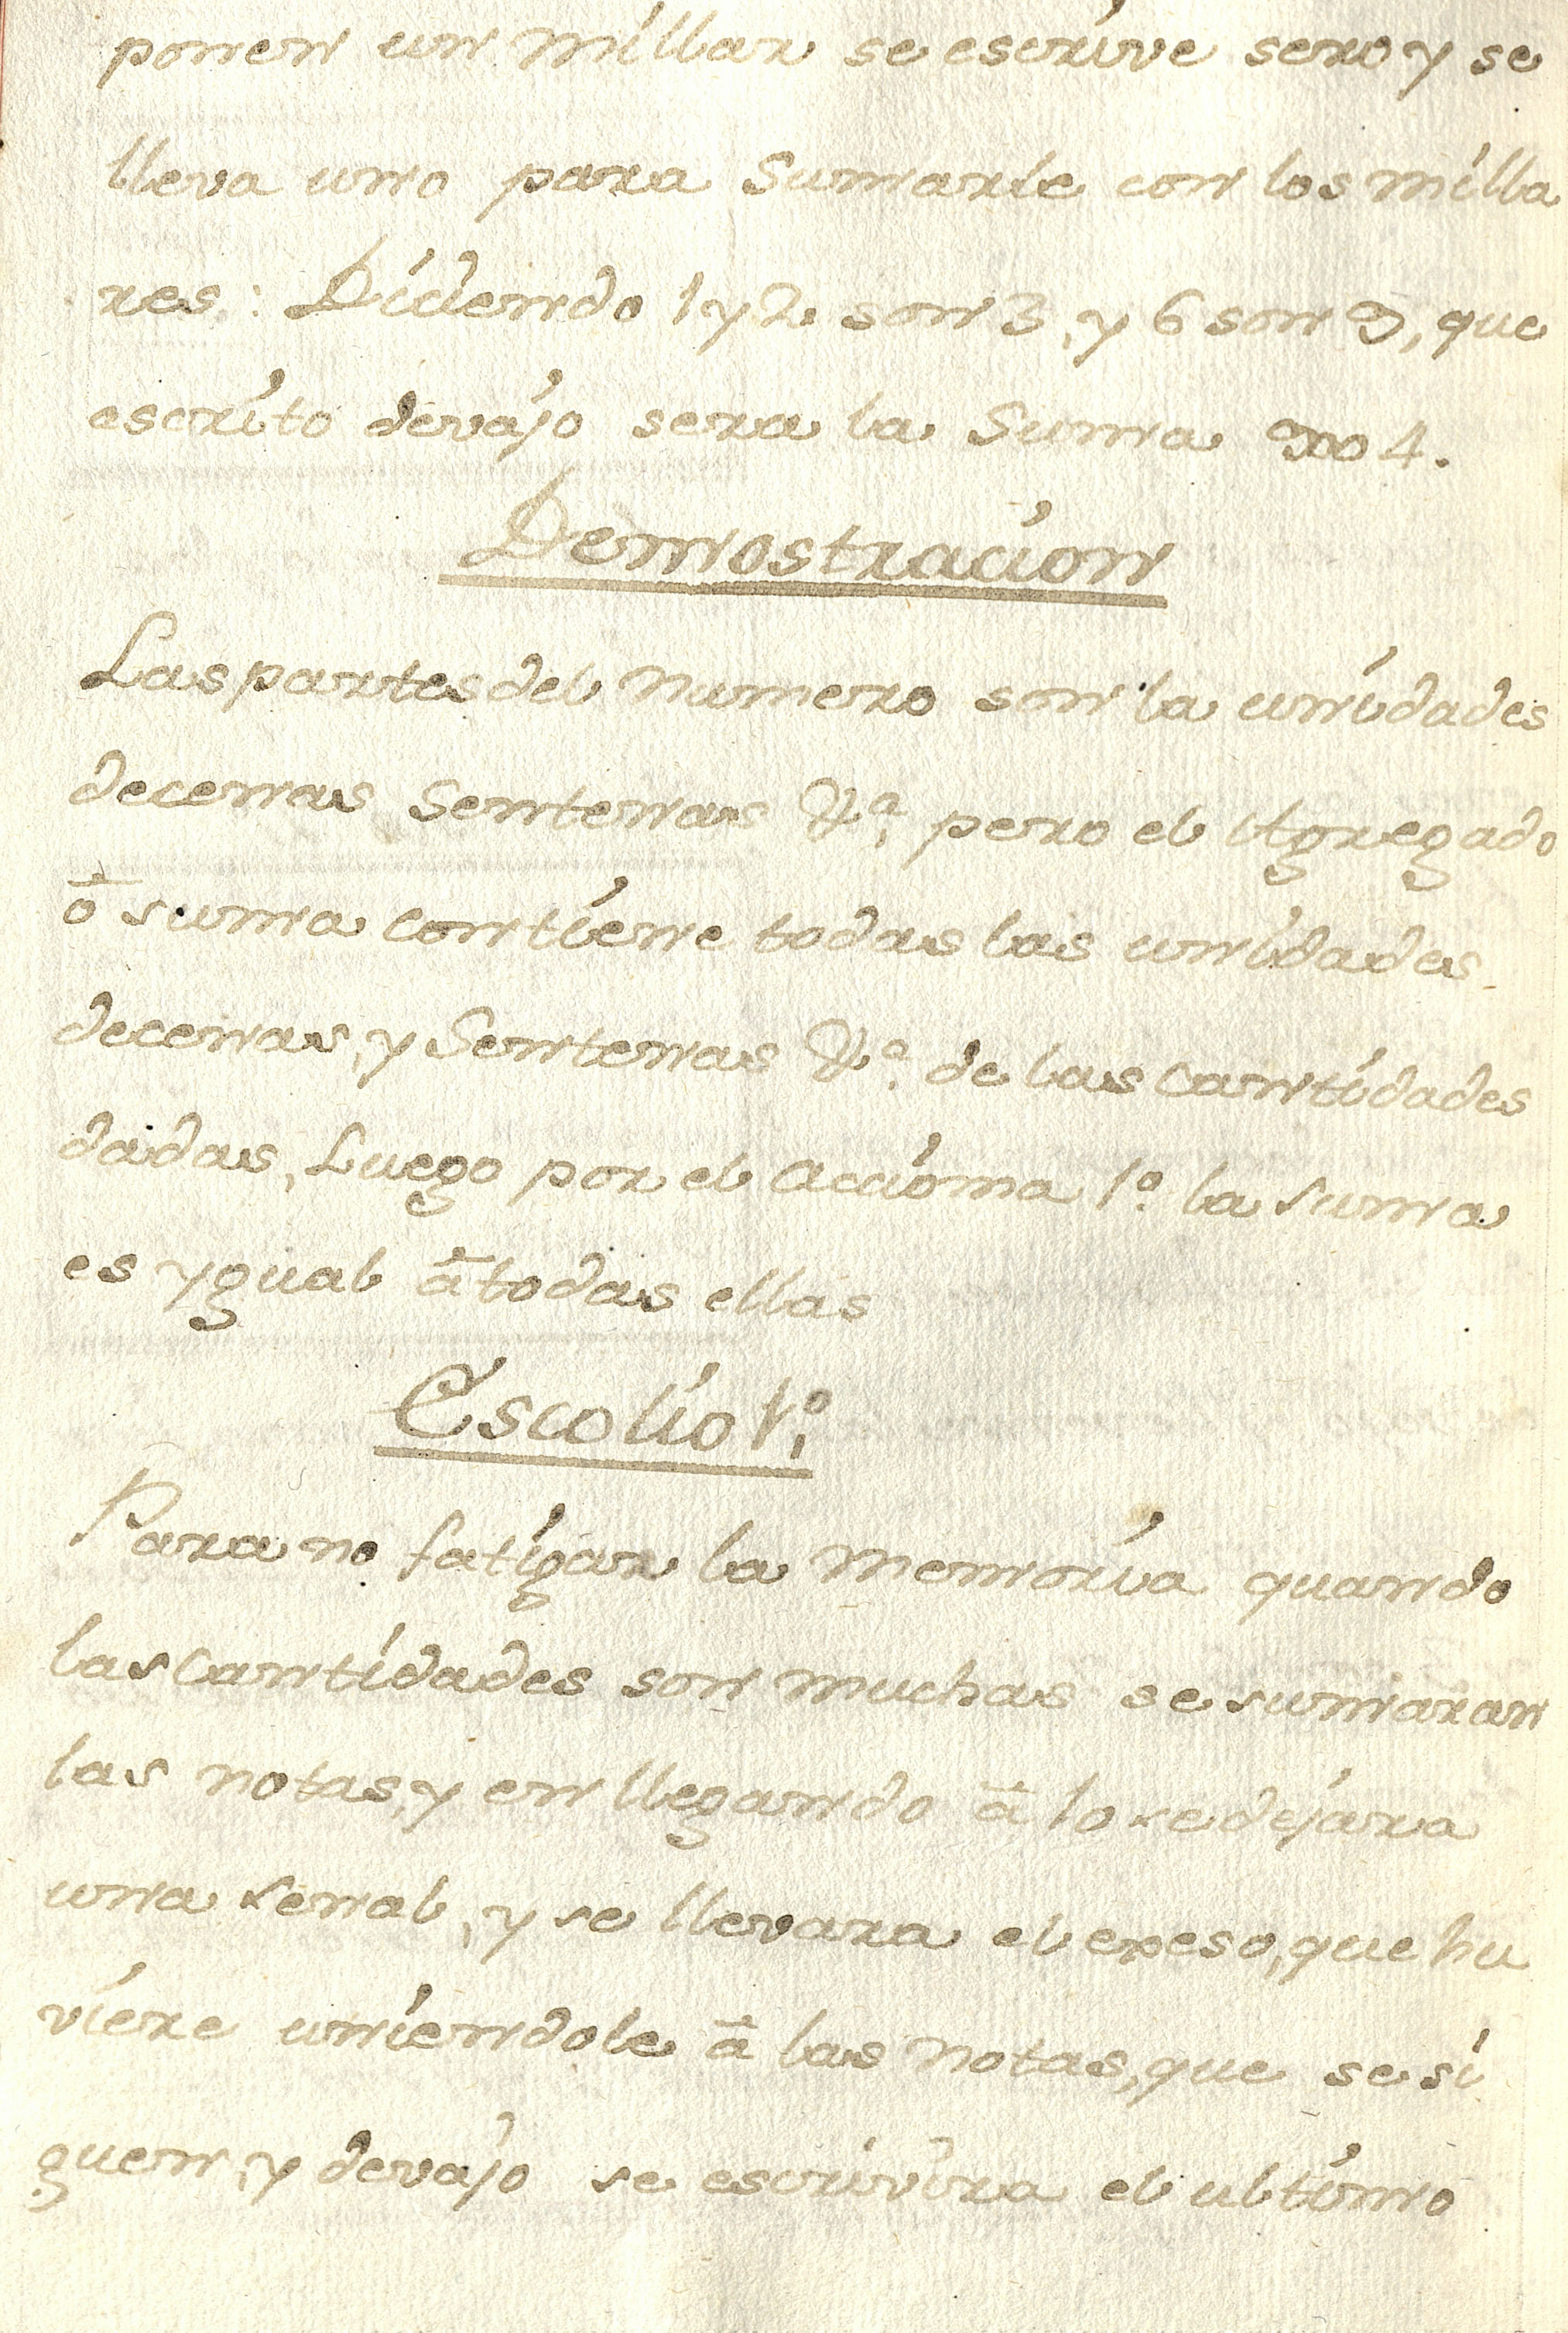 ponen un millar se escrive sero y se
lleva uno para Sumarle con los milla
res: Diciendo 1 y 2 son 3, y 6 son 9, que
escrito devajo sera la Suma 9004.
Demostracion
Las partes del Numero son la unidades
decenas Sentenas &ª, pero el Agregado
ō suma contiene todas las unidades
decenas, y Sentenas &ª. de las cantidades
dadas, Luego por el accioma 1º. la suma
es ygual ā todas ellas
Escolio 1º.
Para no fatigar la memoria quando
las cantidades son muchas se sumaran
las notas, y en llegando ā 10 se dejara
una senal, y se llevara el exeso, que hu
viere uniendole ā las notas, que se si
guen, y devajo se escrivira el ultimo